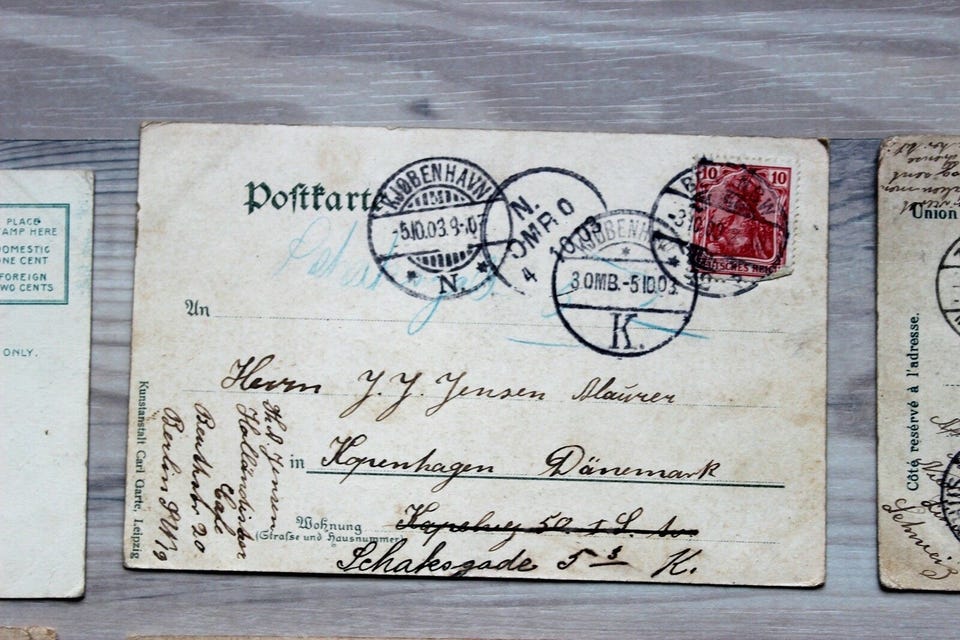 PLACE
STAMP HERE
DOMESTIC
ONE CENT
FOREIGN
TWO CENTS
ONLY.
Postkarte
KJØBENHAVN
-5.10.03.9-10F
N.
N.
OMB
4 10.03
KJØBENHAVN
3 OMB.-5 10 03.
K.
10 10
DEUTSCHES REICH
An
Herrn J. J. Jensen Maurer
in Kopenhagen Dänemark
Wohnung
(Strasse und Hausnummer)
50
Schaksgade 5 3 K.
Th. J. Jensen
Holländischer
Café
Beuthstr 20
Berlin S.W. 19
Kunstanstalt Carl Garte, Leipzig
Union
Côté réservé à l'adresse.
Schweiz